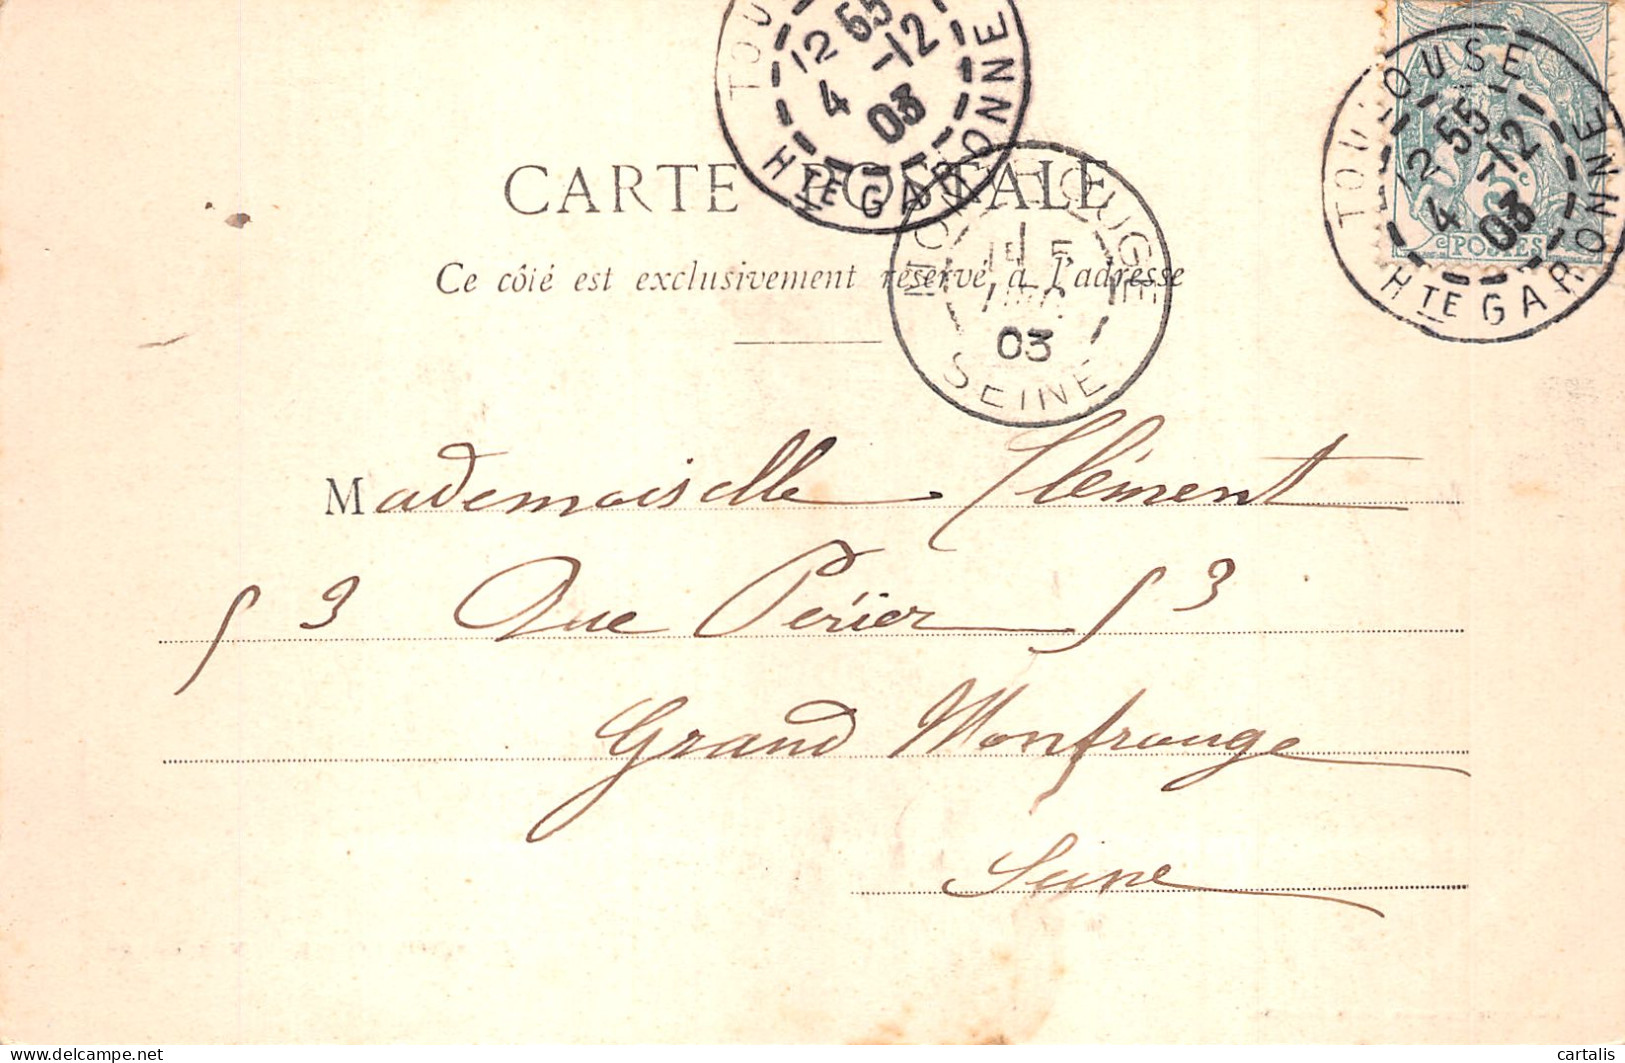 TOULOUSE
12 55
4 -12
03
Hte GARONNE
TOULOUSE
12 55
4 -12
03
Hte GARONNE
5c
POSTES
CARTE POSTALE
Ce côté est exclusivement réservé à l'adresse
MONTROUGE
5
DEC
03
SEINE
Mademoiselle Clément
53 Rue Périer 53
Grand Montrouge
Seine
cartalis